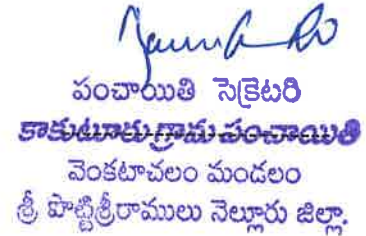 పంచాయితి సెక్రెటరి
కాకుటూరు గ్రామ పంచాయితి
వెంకటాచలం మండలం
శ్రీ పొట్టిశ్రీరాములు నెల్లూరు జిల్లా.